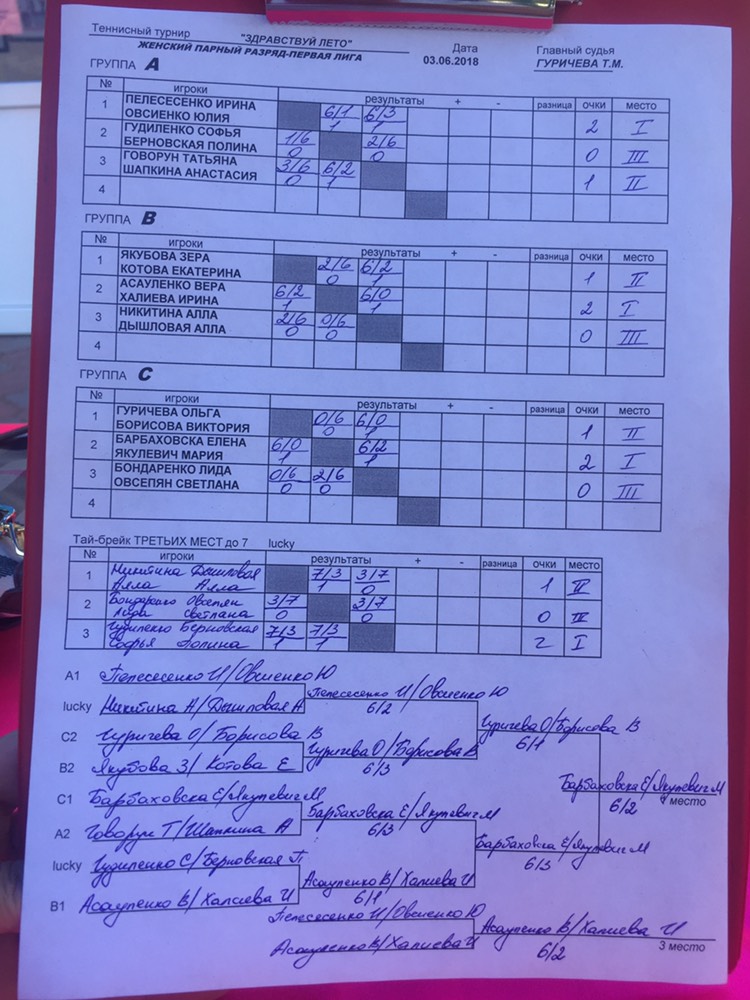 Теннисный турнир "ЗДРАВСТВУЙ ЛЕТО" Дата Главный судья
ЖЕНСКИЙ ПАРНЫЙ РАЗРЯД-ПЕРВАЯ ЛИГА 03.06.2018 ГУРИЧЕВА Т.М.
ГРУППА А
№ игроки результаты + - разница очки место
1 ПЕЛЕСЕСЕНКО ИРИНА 6/1 6/3
ОВСИЕНКО ЮЛИЯ 1 1 2 I
2 ГУДИЛЕНКО СОФЬЯ 1/6 2/6
БЕРНОВСКАЯ ПОЛИНА 0 0 0 III
3 ГОВОРУН ТАТЬЯНА 3/6 6/2
ШАПКИНА АНАСТАСИЯ 0 1 1 II
4
ГРУППА В
№ игроки результаты + - разница очки место
1 ЯКУБОВА ЗЕРА 2/6 6/2
КОТОВА ЕКАТЕРИНА 0 1 1 II
2 АСАУЛЕНКО ВЕРА 6/2 6/0
ХАЛИЕВА ИРИНА 1 1 2 I
3 НИКИТИНА АЛЛА 2/6 0/6
ДЫШЛОВАЯ АЛЛА 0 0 0 III
4
ГРУППА С
№ игроки результаты + - разница очки место
1 ГУРИЧЕВА ОЛЬГА 0/6 6/0
БОРИСОВА ВИКТОРИЯ 0 1 1 II
2 БАРБАХОВСКА ЕЛЕНА 6/0 6/2
ЯКУЛЕВИЧ МАРИЯ 1 1 2 I
3 БОНДАРЕНКО ЛИДА 0/6 2/6
ОВСЕПЯН СВЕТЛАНА 0 0 0 III
4
Тай-брейк ТРЕТЬИХ МЕСТ до 7 lucky
№ игроки результаты + - разница очки место
1 Никитина Дышловая 7/3 3/7
Алла Алла 1 0 1 II
2 Бондаренко Овсепян 3/7 3/7
Лида Светлана 0 0 0 III
3 Гудиленко Берновская 7/3 7/3
Софья Полина 1 1 2 I
A1 Пелесесенко И/Овсиенко Ю
Пелесесенко И/Овсиенко Ю
lucky Никитина А/Дышловая А
6/2
Гуричева О/Борисова В
C2 Гуричева О/Борисова В
6/1
Гуричева О/Борисова В
B2 Якубова З/Котова Е
6/3
Барбаховска Е/Якулевич М
C1 Барбаховска Е/Якулевич М
6/2 1 место
Барбаховска Е/Якулевич М
A2 Говорун Т/Шапкина А
6/3
Барбаховска Е/Якулевич М
lucky Гудиленко С/Берновская П
6/3
Асауленко В/Халиева И
B1 Асауленко В/Халсиева И
6/1
Пелесесенко И/Овсиенко Ю
Асауленко В/Халиева И
Асауленко В/Халиева И
6/2 3 место